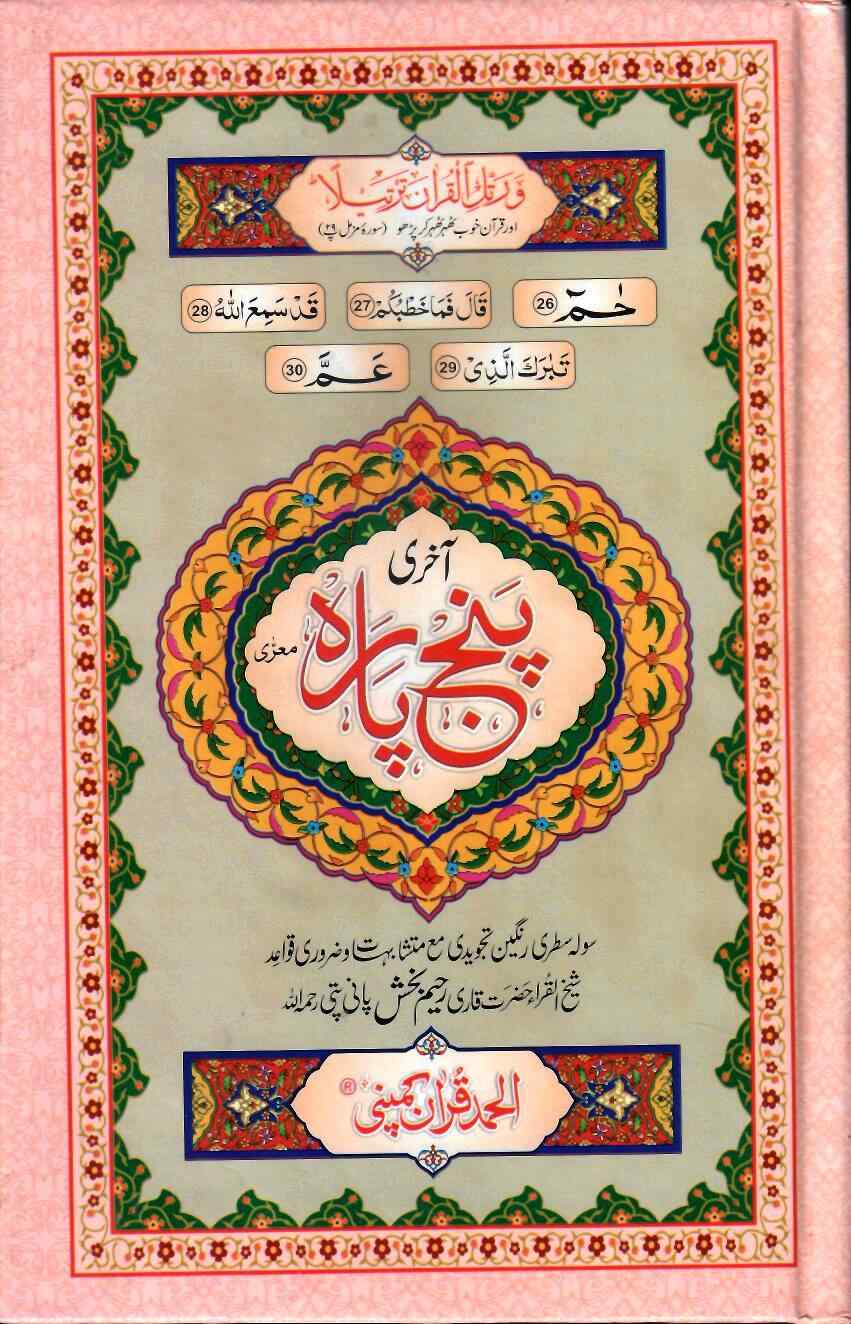 وَرَتِّلِ الْقُرْاٰنَ تَرْتِيْلًا ؕ
اور قرآن خوب ٹھہر ٹھہر کر پڑھو (سورۂ مزمل پ ۲۹)
حٰمٓ 26 قَالَ فَمَا خَطْبُكُمْ 27 قَدْ سَمِعَ اللّٰهُ 28
تَبٰرَكَ الَّذِیْ 29 عَمَّ 30
آخری
پَنج پَارَہ
معرّٰی
سولہ سطری رنگین تجویدی مع متشابہت و ضروری قواعِد
شیخ القُراء حَضرَت قاری رحیم بخش پانی پتی رحمہ اللہ
الحمد قُرآن کمپنی ®